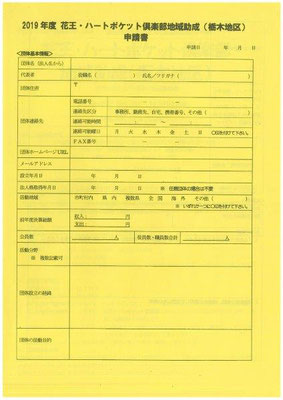 2019年度 花王・ハートポケット倶楽部地域助成(栃木地区)
申請書
申請日　年　月　日
<団体基本情報>
団体名(法人名から)
代表者　役職名(　)　氏名/フリガナ(　)
団体住所　〒
団体連絡先
電話番号　－　－
連絡先区分　事務所、勤務先、自宅、携帯番号、その他(　)
連絡可能時間　～
連絡可能曜日　月 火 水 木 金 土 日　○印を付けて下さい。
FAX番号　－　－
団体ホームページURL
メールアドレス
設立年月日　年　月　日
法人格取得年月日　年　月　日　※任意団体の場合は不要
活動地域　市町村内 県内 複数県 全国 海外 その他(　)
※いずれか一つに○印を付けて下さい。
前年度決算総額　収入:　円
支出:　円
会員数　人　役員数・職員数合計　人
活動分野
※ 複数記載可
団体設立の経緯
団体の活動目的